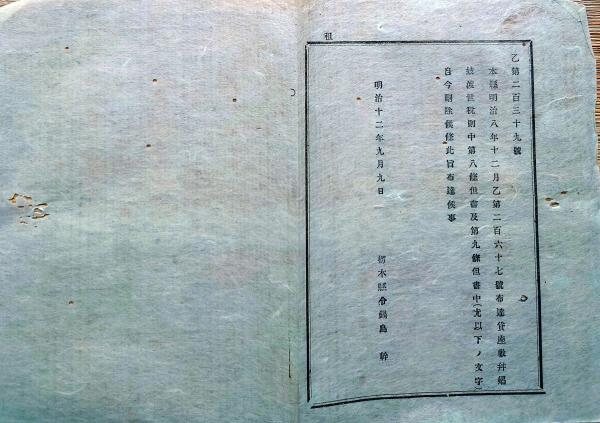 租
乙第二百三十九號
本縣明治八年十二月乙第二百六十七號布達貸座敷幷娼
妓渡世規則中第八條但書及第九條但書中(尤以下ノ文字)
自今削除候條此旨布達候事
明治十二年九月九日
栃木縣令鍋島 幹